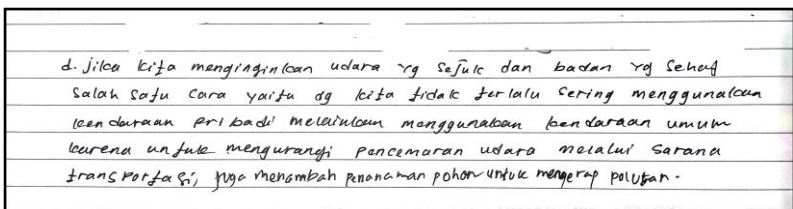 d. jika kita menginginkan udara yg sejuk dan badan yg sehat
salah satu cara yaitu dg kita tidak terlalu sering menggunakan
kendaraan pribadi melainkan menggunakan kendaraan umum
karena untuk mengurangi pencemaran udara melalui sarana
transportasi, juga menambah penanaman pohon untuk mengerap polutan.